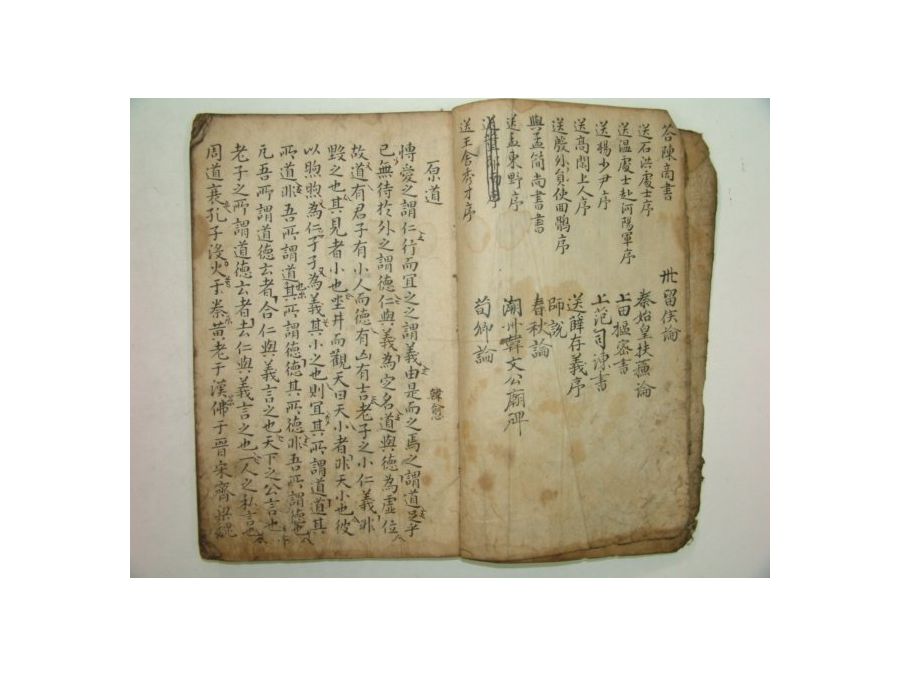 答陳啇書
送石洪處士序
送温處士赴河陽軍序
送楊少尹序
送高閑上人序
送殷外員使回鶻序
與孟簡尚書書
送孟東野序
送王含秀才序
留侯論
秦始皇扶蘓論
上田樞密書
上范司諫書
送薛存義序
師說
春秋論
潮州韓文公廟碑
荀卿論
原道
韓愈
愽愛之謂仁行而冝之之謂義由是而之焉之謂道足乎
已無待於外之謂德仁與義為定名道與德為虛位
故道有君子有小人而德有凶有吉老子之小仁義非
毀之也其見者小也坐井而觀天曰天小者非天小也彼
以煦煦為仁孑孑為義其小之也則冝其所謂道道其
所道非吾所謂道其所謂德德其所德非吾所謂德也
凡吾所謂道德云者合仁與義言之也天下之公言也
老子之所謂道德云者去仁與義言之也一人之私言也
周道衰孔子沒火于秦黃老于漢佛于晉宋齊梁魏